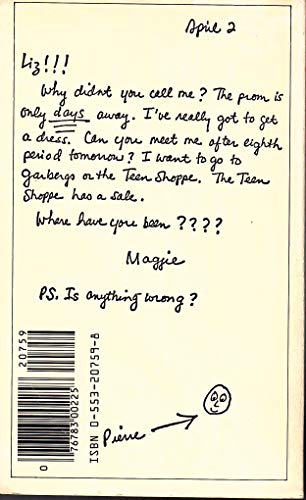 April 2
Liz!!!
Why didnt you call me? The prom is
only days away. I've really got to get
a dress. Can you meet me after eighth
period tomorrow? I want to go to
Garbergs or the Teen Shoppe. The Teen
Shoppe has a sale.
Where have you been ????
Maggie
PS. Is anything wrong?
20759
0 76783 00225
ISBN 0-553-20759-8
Pierre